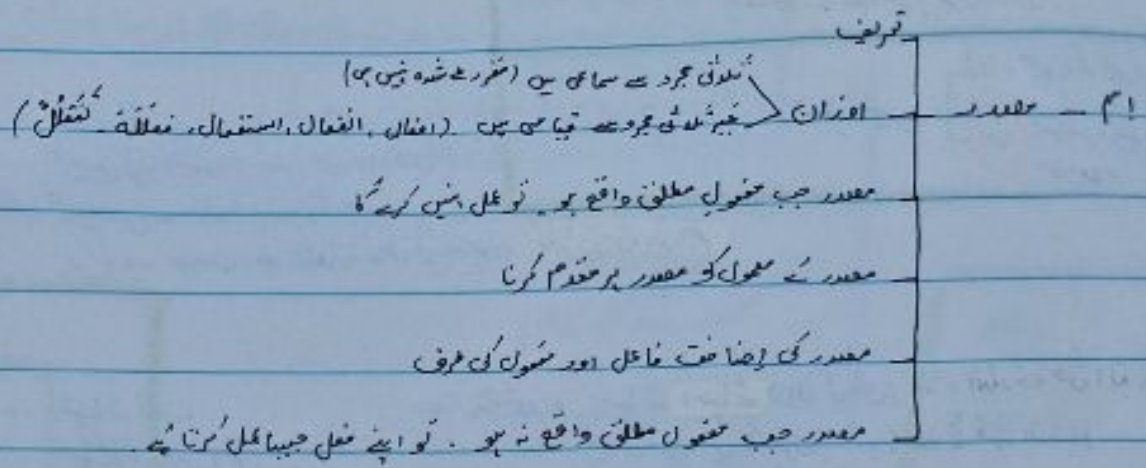 تعریف
ثلاثی مجرد سے سماعی ہیں (مقرر طے شدہ نہیں ہیں)
اسم - مصدر - اوزان
غیر ثلاثی مجرد سے قیاسی ہیں (افعال، انفعال، استفعال، فعللة، تفعلل)
مصدر جب مفعول مطلق واقع ہو۔ تو عمل نہیں کرے گا
مصدر کے معمول کو مصدر پر مقدم کرنا
مصدر کی اضافت فاعل اور مفعول کی طرف
مصدر جب مفعول مطلق واقع نہ ہو۔ تو اپنے فعل جیسا عمل کرتا ہے۔